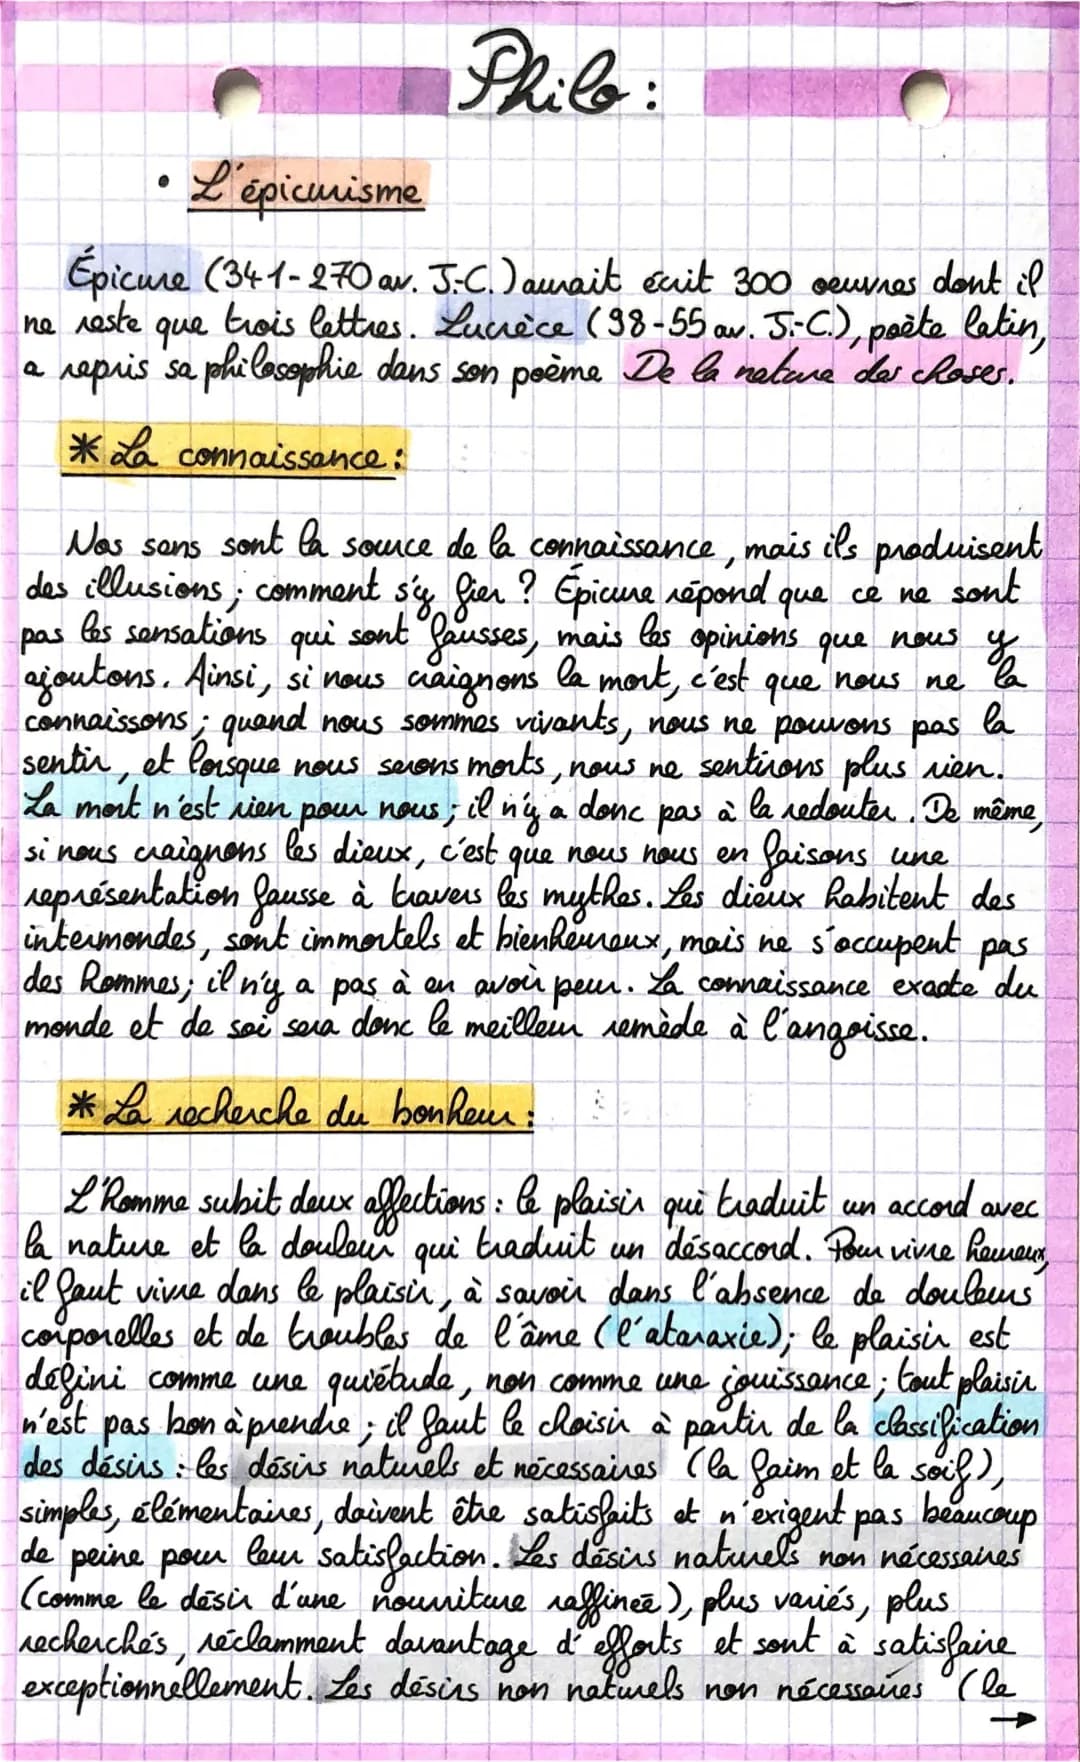 Philo :
• L'épicurisme
Épicure (341-270 av. J.-C.) aurait écrit 300 oeuvres dont il
ne reste que trois lettres. Lucrèce (98-55 av. J.-C.), poète latin,
a repris sa philosophie dans son poème De la nature des choses.
* La connaissance :
Nos sens sont la source de la connaissance, mais ils produisent
des illusions ; comment s'y fier ? Épicure répond que ce ne sont
pas les sensations qui sont fausses, mais les opinions que nous y
ajoutons. Ainsi, si nous craignons la mort, c'est que nous ne la
connaissons ; quand nous sommes vivants, nous ne pouvons pas la
sentir, et lorsque nous serons morts, nous ne sentirons plus rien.
La mort n'est rien pour nous ; il n'y a donc pas à la redouter. De même,
si nous craignons les dieux, c'est que nous nous en faisons une
représentation fausse à travers les mythes. Les dieux habitent des
intermondes, sont immortels et bienheureux, mais ne s'occupent pas
des hommes ; il n'y a pas à en avoir peur. La connaissance exacte du
monde et de soi sera donc le meilleur remède à l'angoisse.
* La recherche du bonheur :
L'homme subit deux affections : le plaisir qui traduit un accord avec
la nature et la douleur qui traduit un désaccord. Pour vivre heureux,
il faut vivre dans le plaisir, à savoir dans l'absence de douleurs
corporelles et de troubles de l'âme (l'ataraxie) ; le plaisir est
défini comme une quiétude, non comme une jouissance ; tout plaisir
n'est pas bon à prendre ; il faut le choisir à partir de la classification
des désirs : les désirs naturels et nécessaires (la faim et la soif),
simples, élémentaires, doivent être satisfaits et n'exigent pas beaucoup
de peine pour leur satisfaction. Les désirs naturels non nécessaires
(comme le désir d'une nourriture raffinée), plus variés, plus
recherchés, réclamment davantage d'efforts et sont à satisfaire
exceptionnellement. Les désirs non naturels non nécessaires (le
→